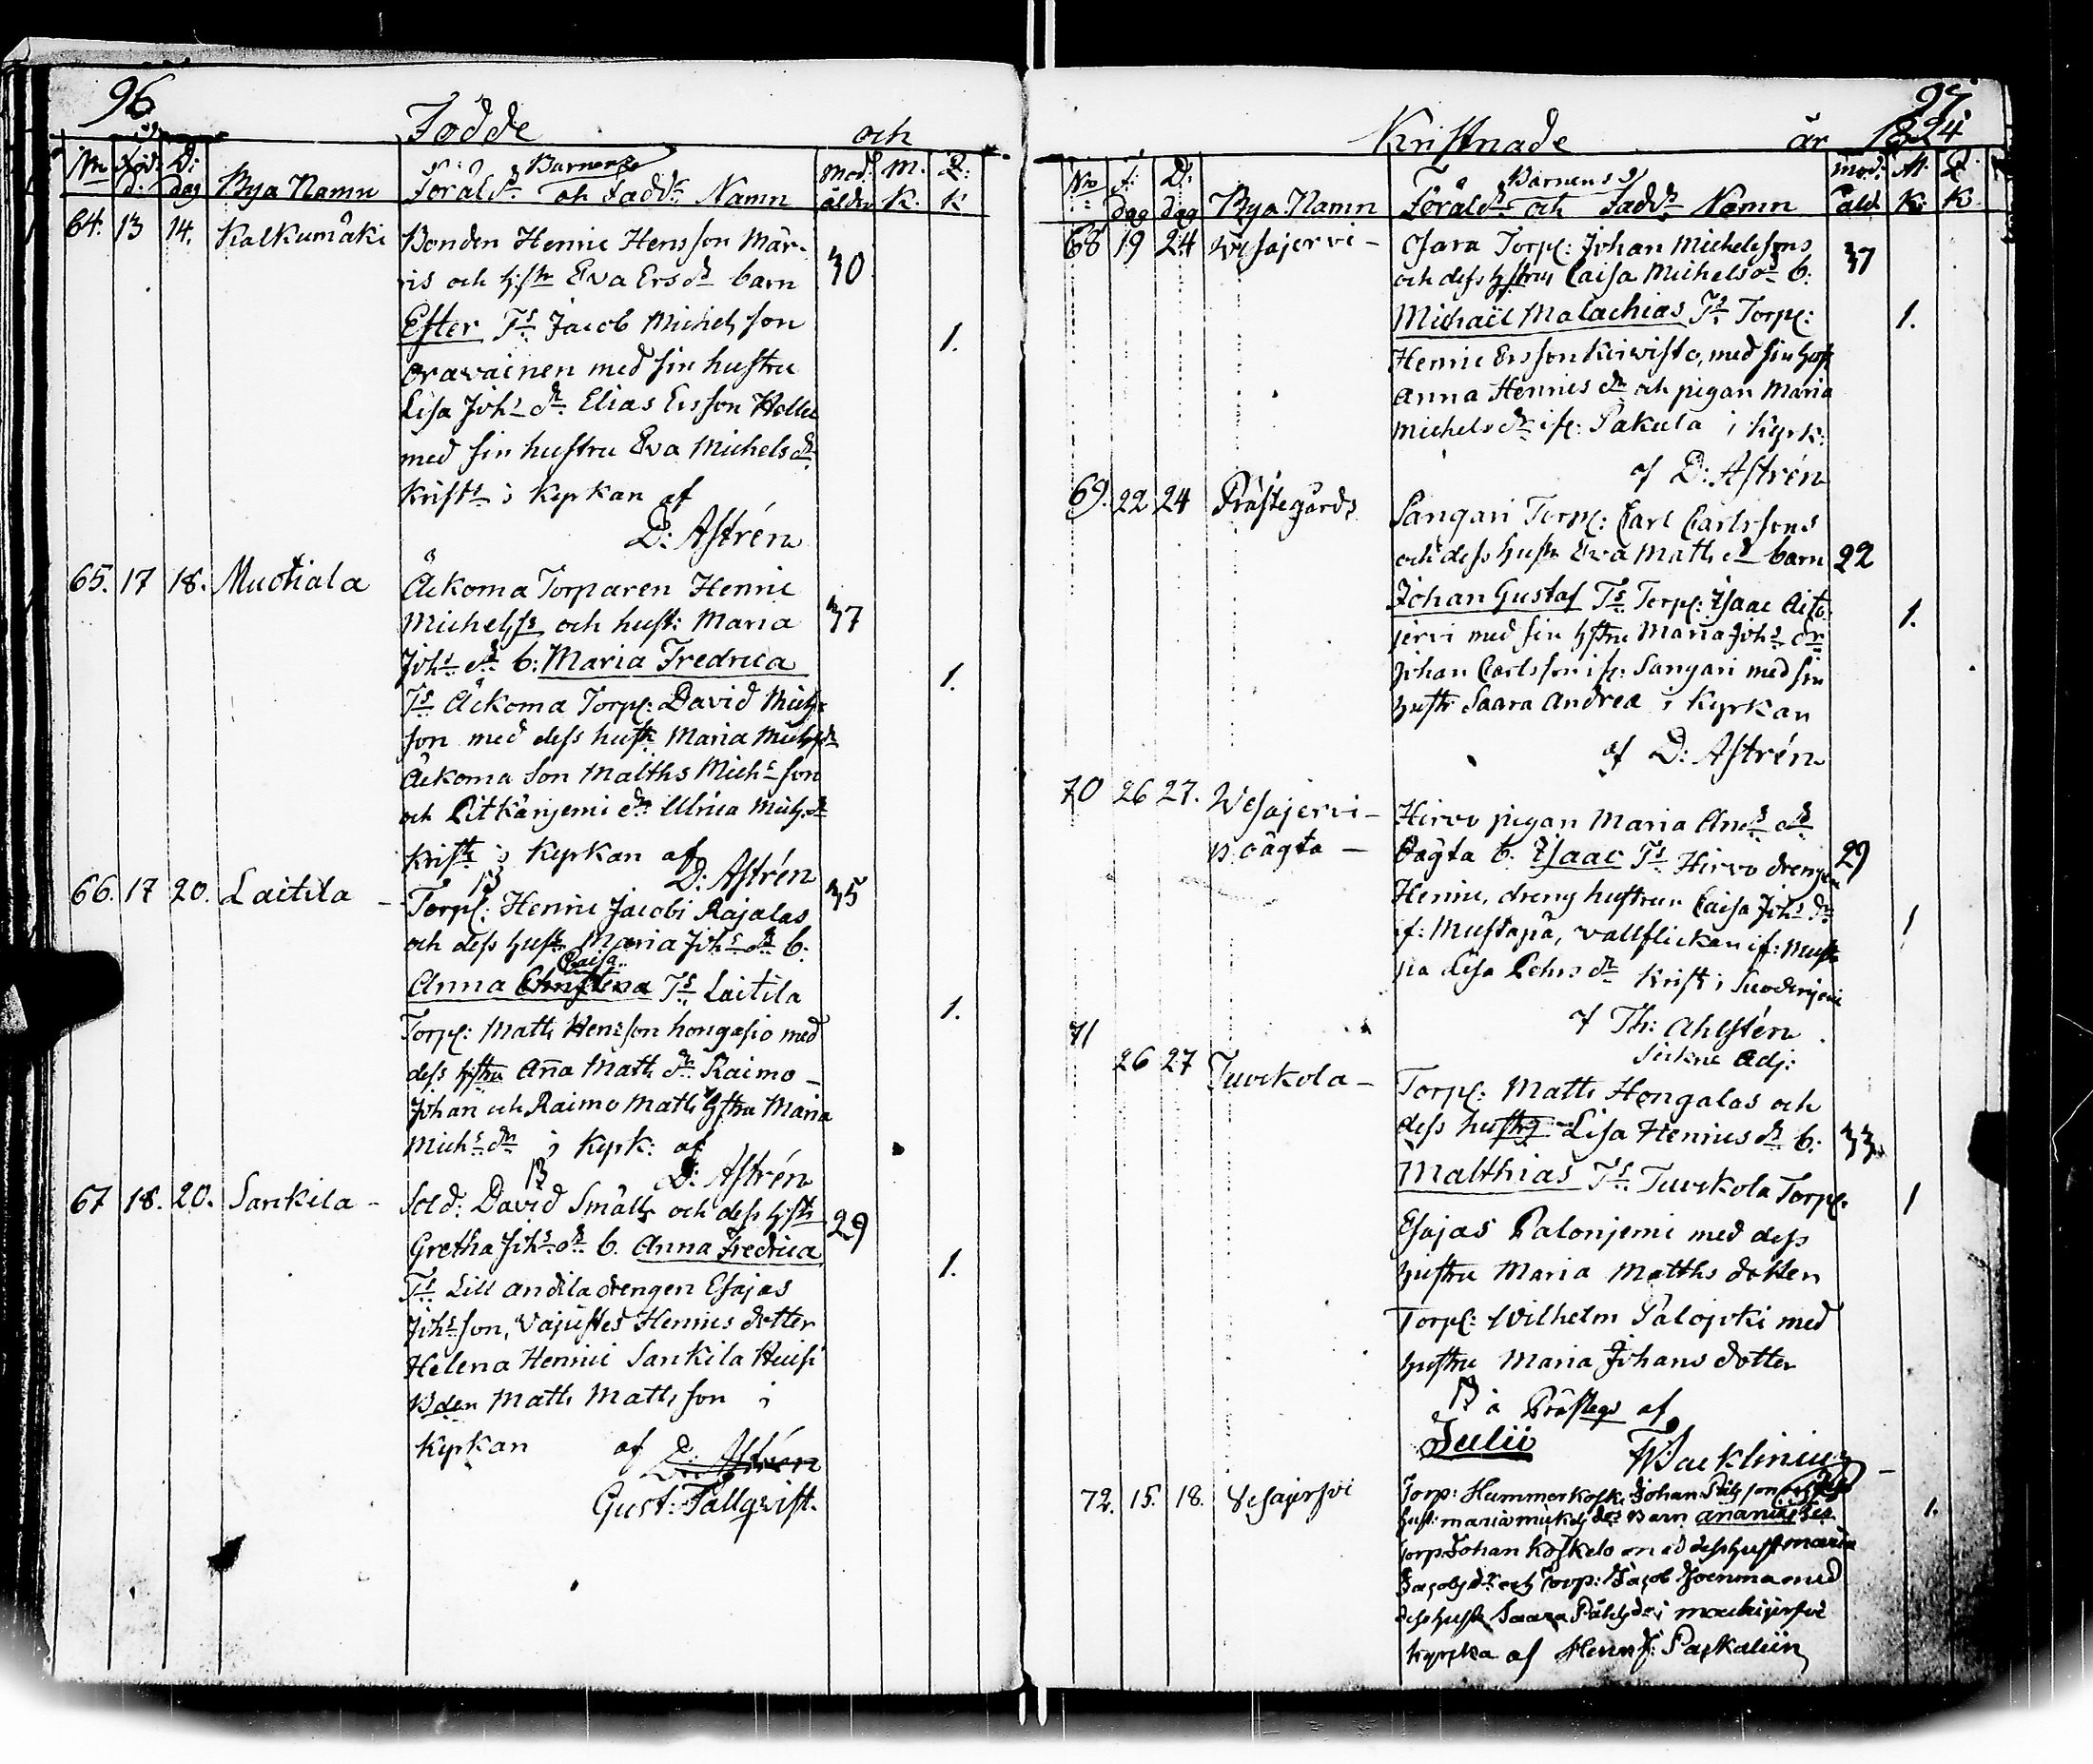 96
Födde och
No Föd: d: D: dag Bya Namn Föräld:r Barnens och Fadd:r Namn Mod: ålder M. K. Q: K
64. 13 14. Kalkumäki Bonden Henric Hensson Mär- 30
ris och h:str Eva Ersdr barn
Ester Ts Jacob Michelsson 1.
Oravainen med sin hustru
Lisa Johs dr. Elias Ersson
med sin hustru Eva Michelsdr
Krists i Kyrkan af
D: Astrén
65. 17 18. Muotiala Äckoma Torparen Henric
Michelss och hust: Maria 37
Johs dr b: Maria Fredrica
Ts Äckoma Torp: David Michs 1.
son med dess hustr Maria Michsdr
Äckoma Son Malths Michs son
och Pitkänjemi dr Ulrica Michs dr
Krists i Kyrkan af
D: Astrén
66. 17 20. Laitila – Torp: Henric Jacobi Rajalas 35
och dess hustr Maria Johs dr b:
Caisa
Anna Christina Ts Laitila 1.
Torp: Matts Hensson hongasio med
dess hstru Aña Matts dr Raimo –
Johan och Raimo Matts hstru Maria
Michs dr i Kyrk: af
D: Astrén
67 18. 20. Sankila – Sold: David Smält och dess hstr 29
Gretha Johs dr b. Anna Fredrica
Ts Lill andila drengen Esajas 1.
Johs son, Henrics dotter
Helena Henric Sankila
Bden Matts Mattsson i
Kyrkan af D: Astrén
Gust: Tallqvist.
97.
Kristnade år 1824
No F: dag D: dag Bya Namn Föräld:r Barnens och Fadd:r Namn Mod: åld. M. K: Q. K.
68 19 24 Wesajervi – Osara Torp: Johan Michelssons 37
och dess hstrus Caisa Michelsdr b:
Michaël Malachias Ts Torp: 1.
Henric Ersson Kivisto, med sin hust
Anna Henrics dr och pigan Maria
Michels dr if: Pakula i Kyrk:
af D: Astrén
69. 22 24 Prästegårds Sangari Torp: Carl Carlssons
och dess hustr Eva Matts dr barn 22
Johan Gustaf Ts Torp: Isaac Aito- 1.
jervi med sin hstru Maria Johs dr
Johan Carlsson if: Sangari med sin
hustr Saara Andrea i Kyrkan
af D: Astrén
70 26 27. Wesajervi – Hirvo pigan Maria Ands dr
b. oägta – Oägta b. Isaac Ts Hirvo drengen 29
Henric, dreng hustrun Caisa Johs dr 1
if: Mustapä, vallflickan if: Musta
pä Lisa Pehrs dr Krist i Suodenjemi
af Th: Ahlstén
Sockne Adj:
71 26 27 Tuvkola – Torp: Matts Hongalas och
dess hustrs Lisa Henrics dr b: 33
Malthias Ts Tuvkola Torp: 1
Esajas Palonjemi med dess
hustru Maria Matths dotter
Torp: Wilhelm Palojoki med
hustru Maria Johans dotter
i Prästegd af
Julii W Backlinius
72. 15. 18. Vesajerfvi Torp: Hummerkoski Johan
hust: maria mickels dr: Barn Ananias 1.
torp Johan Koskelo med dess hust maria
Jacobs dr och torp: Jacob Joenma med
dess hustr Saara i mouhijerfvi
kyrcka af Henr J: Paskalin